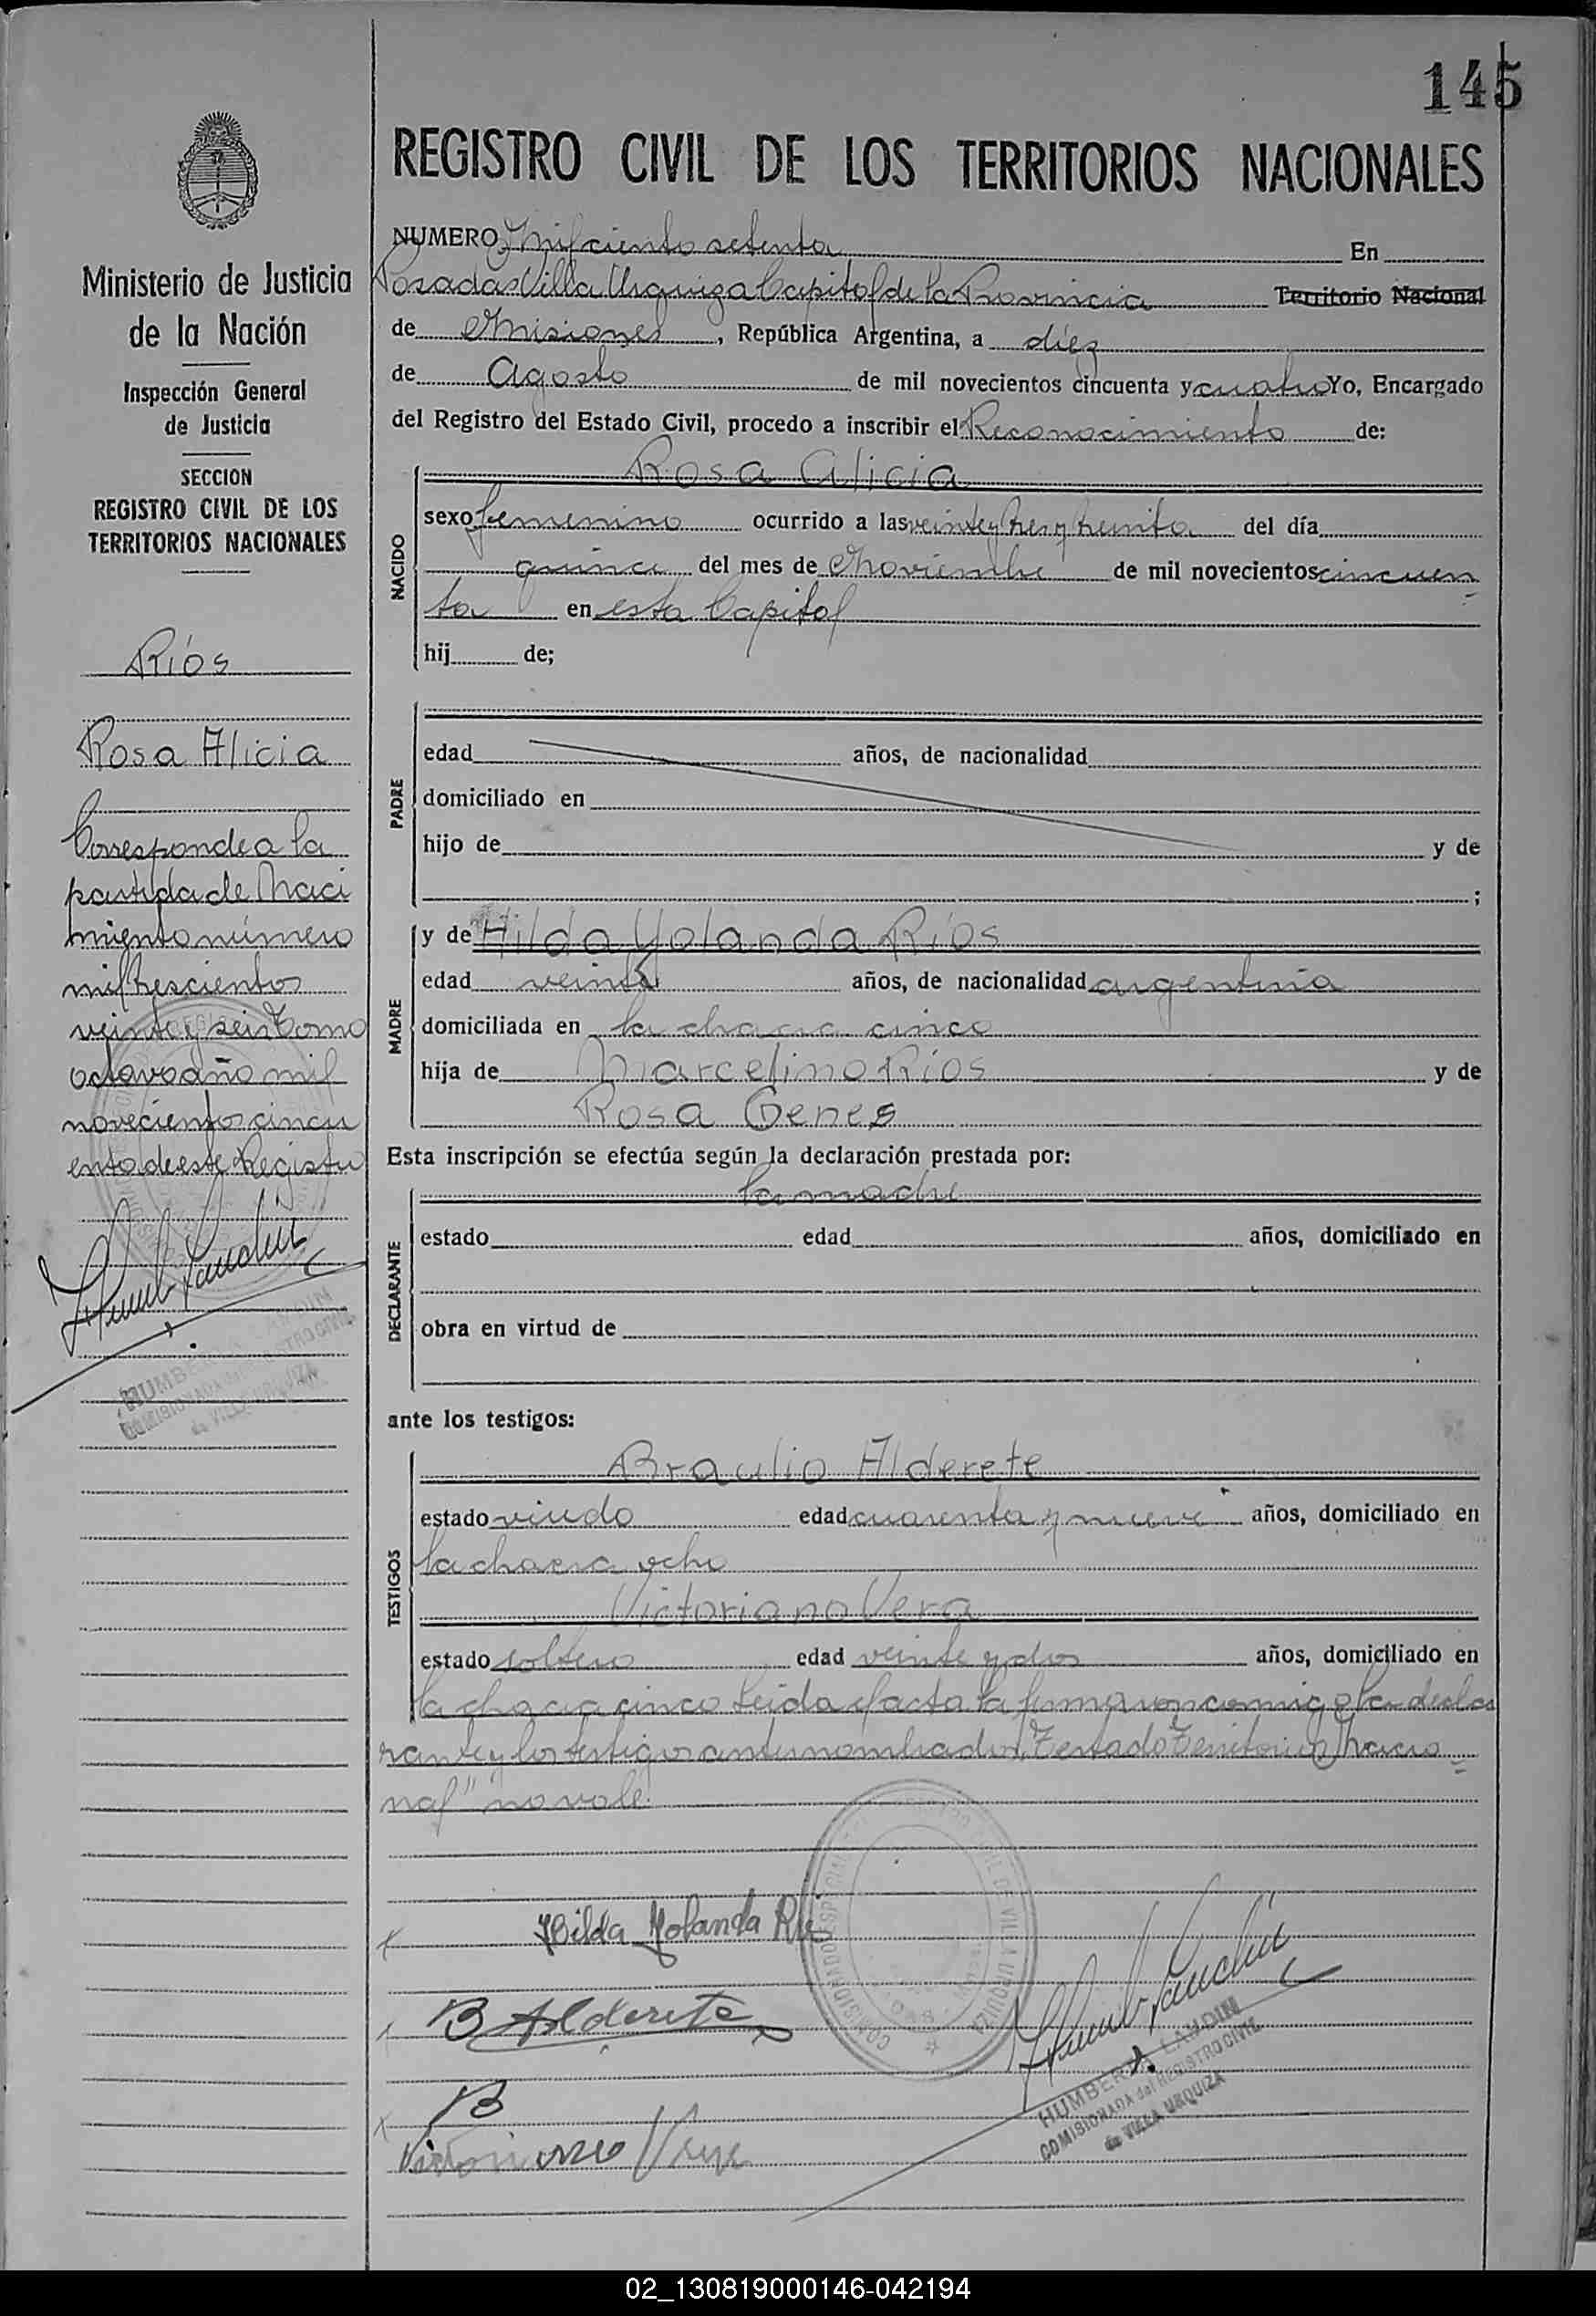 145
REGISTRO CIVIL DE LOS TERRITORIOS NACIONALES
Ministerio de Justicia
de la Nación
Inspección General
de Justicia
SECCION
REGISTRO CIVIL DE LOS
TERRITORIOS NACIONALES
Ríos
Rosa Alicia
Corresponde a la
partida de Naci
miento número
mil trescientos
veinte y seis Tomo
octavo año mil
novecientos cincu
enta de este Registro
NUMERO mil ciento setenta En
Posadas Villa Urquiza Capital de la Provincia Territorio Nacional
de Misiones, República Argentina, a diez
de Agosto de mil novecientos cincuenta y cuatro Yo, Encargado
del Registro del Estado Civil, procedo a inscribir el Reconocimiento de:
NACIDO
Rosa Alicia
sexo femenino ocurrido a las veinte y tres y treinta del día
quince del mes de Noviembre de mil novecientos cincuen
ta en esta Capital
hij de;
PADRE
edad años, de nacionalidad
domiciliado en
hijo de y de
;
MADRE
y de Hilda Yolanda Ríos
edad veinte años, de nacionalidad argentina
domiciliada en la chacra cinco
hija de Marcelino Ríos y de
Rosa Genes
Esta inscripción se efectúa según la declaración prestada por:
DECLARANTE
la madre
estado edad años, domiciliado en
obra en virtud de
ante los testigos:
TESTIGOS
Braulio Alderete
estado viudo edad cuarenta y nueve años, domiciliado en
la chacra ocho
Victoriano Vera
estado soltero edad veinte y dos años, domiciliado en
la chacra cinco Leida el acta la firmaron conmigo la decla
rante y los testigos antes nombrados, Testado Territorio Nacio
nal" no vale.
Hilda Yolanda Ri
B Alderete
B
Victoriano Vera
HUMBERTO LANDIN
COMISIONADA del REGISTRO CIVIL
de VILLA URQUIZA
02_130819000146-042194